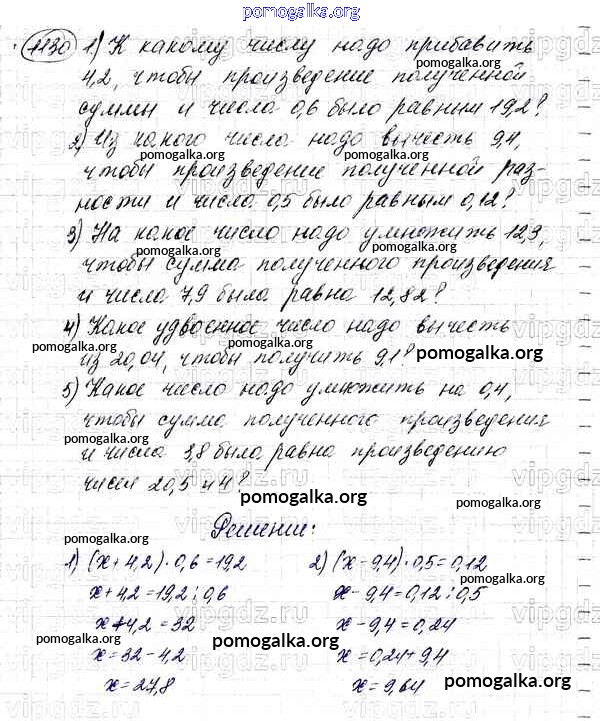 pomogalka.org
1130 1) К какому числу надо прибавить
4,2, чтобы произведение полученной
суммы и числа 0,6 было равным 19,2?
2) Из какого числа надо вычесть 9,4,
pomogalka.org pomogalka.org
чтобы произведение полученной раз-
ности и числа 0,5 было равным 0,12?
pomogalka.org pomogalka.org
3) На какое число надо умножить 12,3,
чтобы сумма полученного произведения
и числа 7,9 была равна 12,82?
4) Какое удвоенное число надо вычесть
pomogalka.org
из 20,04, чтобы получить 9,1? pomogalka.org
5) Какое число надо умножить на 0,4,
чтобы сумма полученного произведения
pomogalka.org
и числа 3,8 была равна произведению
чисел 20,5 и 4?
pomogalka.org pomogalka.org
Решение:
1) (x+4,2)·0,6=19,2 2) (x-9,4)·0,5=0,12
x+4,2=19,2:0,6 x-9,4=0,12:0,5
pomogalka.org
x+4,2=32 x-9,4=0,24
pomogalka.org
x=32-4,2 x=0,24+9,4
x=27,8 x=9,64
pomogalka.org